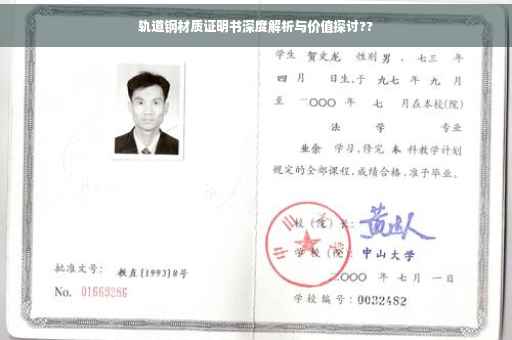 轨道钢材质证明书深度解析与价值探讨??
学生 贺文龙 性别 男 , 七三 年
四 月 日生,于 九七 年 九 月
至 二〇〇〇 年 七 月在本校(院)
法 学 专业
业余 学习,修完 本 科教学计划
规定的全部课程,成绩合格,准予毕业。
校(院)长:
学校(院): 中山大学
二〇〇〇 年 七 月 一 日
学校编号: 0032482
批准文号: 教直(1993)8号
No. 01663286